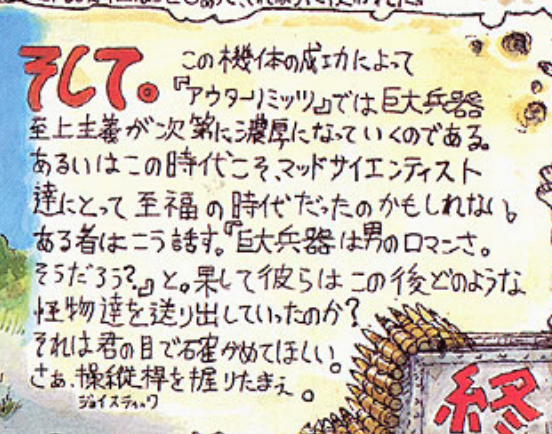 そして。
この機体の成功によって
『アウターリミッツ』では巨大兵器
至上主義が次第に濃厚になっていくのである。
あるいはこの時代こそ、マッドサイエンティスト
達にとって至福の時代だったのかもしれない。
ある者はこう話す。『巨大兵器は男のロマンさ。
そうだろう?』と。果して彼らはこの後どのような
怪物達を送り出していったのか?
それは君の目で確かめてほしい。
さぁ、操縦桿を握りたまえ。
ジョイスティック
終